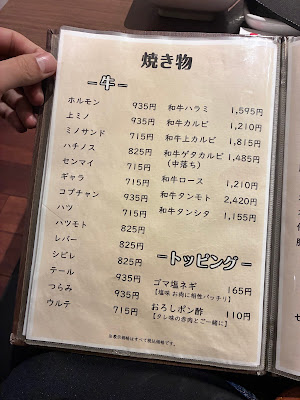 焼き物
ー牛ー
ホルモン 935円
上ミノ 935円
ミノサンド 715円
ハチノス 825円
センマイ 715円
ギャラ 715円
コブチャン 935円
ハツ 715円
ハツモト 825円
レバー 825円
シビレ 825円
テール 935円
つらみ 935円
ウルテ 715円
和牛ハラミ 1,595円
和牛カルビ 1,210円
和牛上カルビ 1,815円
和牛ゲタカルビ 1,485円
(中落ち)
和牛ロース 1,210円
和牛タンモト 2,420円
和牛タンシタ 1,155円
ートッピングー
ゴマ塩ネギ 165円
【塩味 お肉に相性バッチリ】
おろしポン酢 110円
【タレ味の赤肉とご一緒に】
※表示価格はすべて税込価格です。